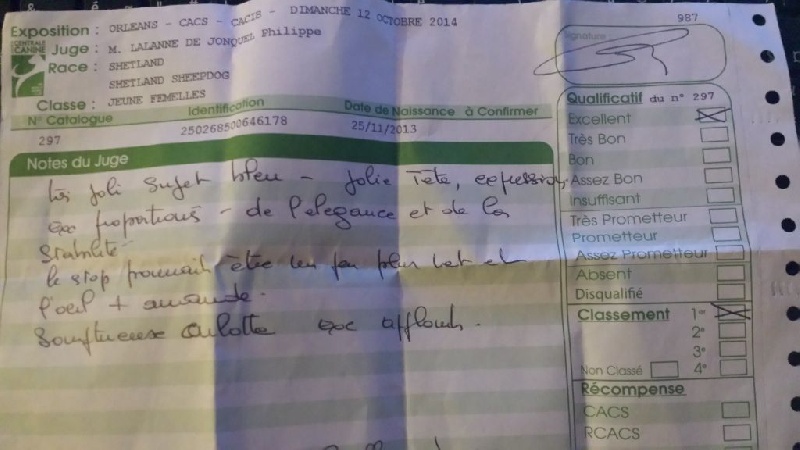 987
Exposition : ORLEANS - CACS - CACIS - DIMANCHE 12 OCTOBRE 2014
CENTRALE CANINE
Juge : M. LALANNE DE JONQUEL Philippe
Race : SHETLAND
SHETLAND SHEEPDOG
Classe : JEUNE FEMELLES
N° Catalogue Identification Date de Naissance à Confirmer
297 250268500646178 25/11/2013
Notes du Juge
très joli sujet bleu - jolie tête, expression,
exc proportions - de l'elegance et de la
stabilité
le stop pourrait être un peu plus net et
l'oeil + amande.
Somptueuse culotte exc applombs.
Signature
Qualificatif du n° 297
Excellent
Très Bon
Bon
Assez Bon
Insuffisant
Très Prometteur
Prometteur
Assez Prometteur
Absent
Disqualifié
Classement 1er
2e
3e
Non Classé 4e
Récompense
CACS
RCACS